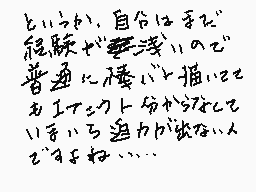 というか、自分はまだ
経験が浅いので
普通に棒バト描いてて
もエフェクト分からなくて
いまいち迫力が出ないん
ですよね……